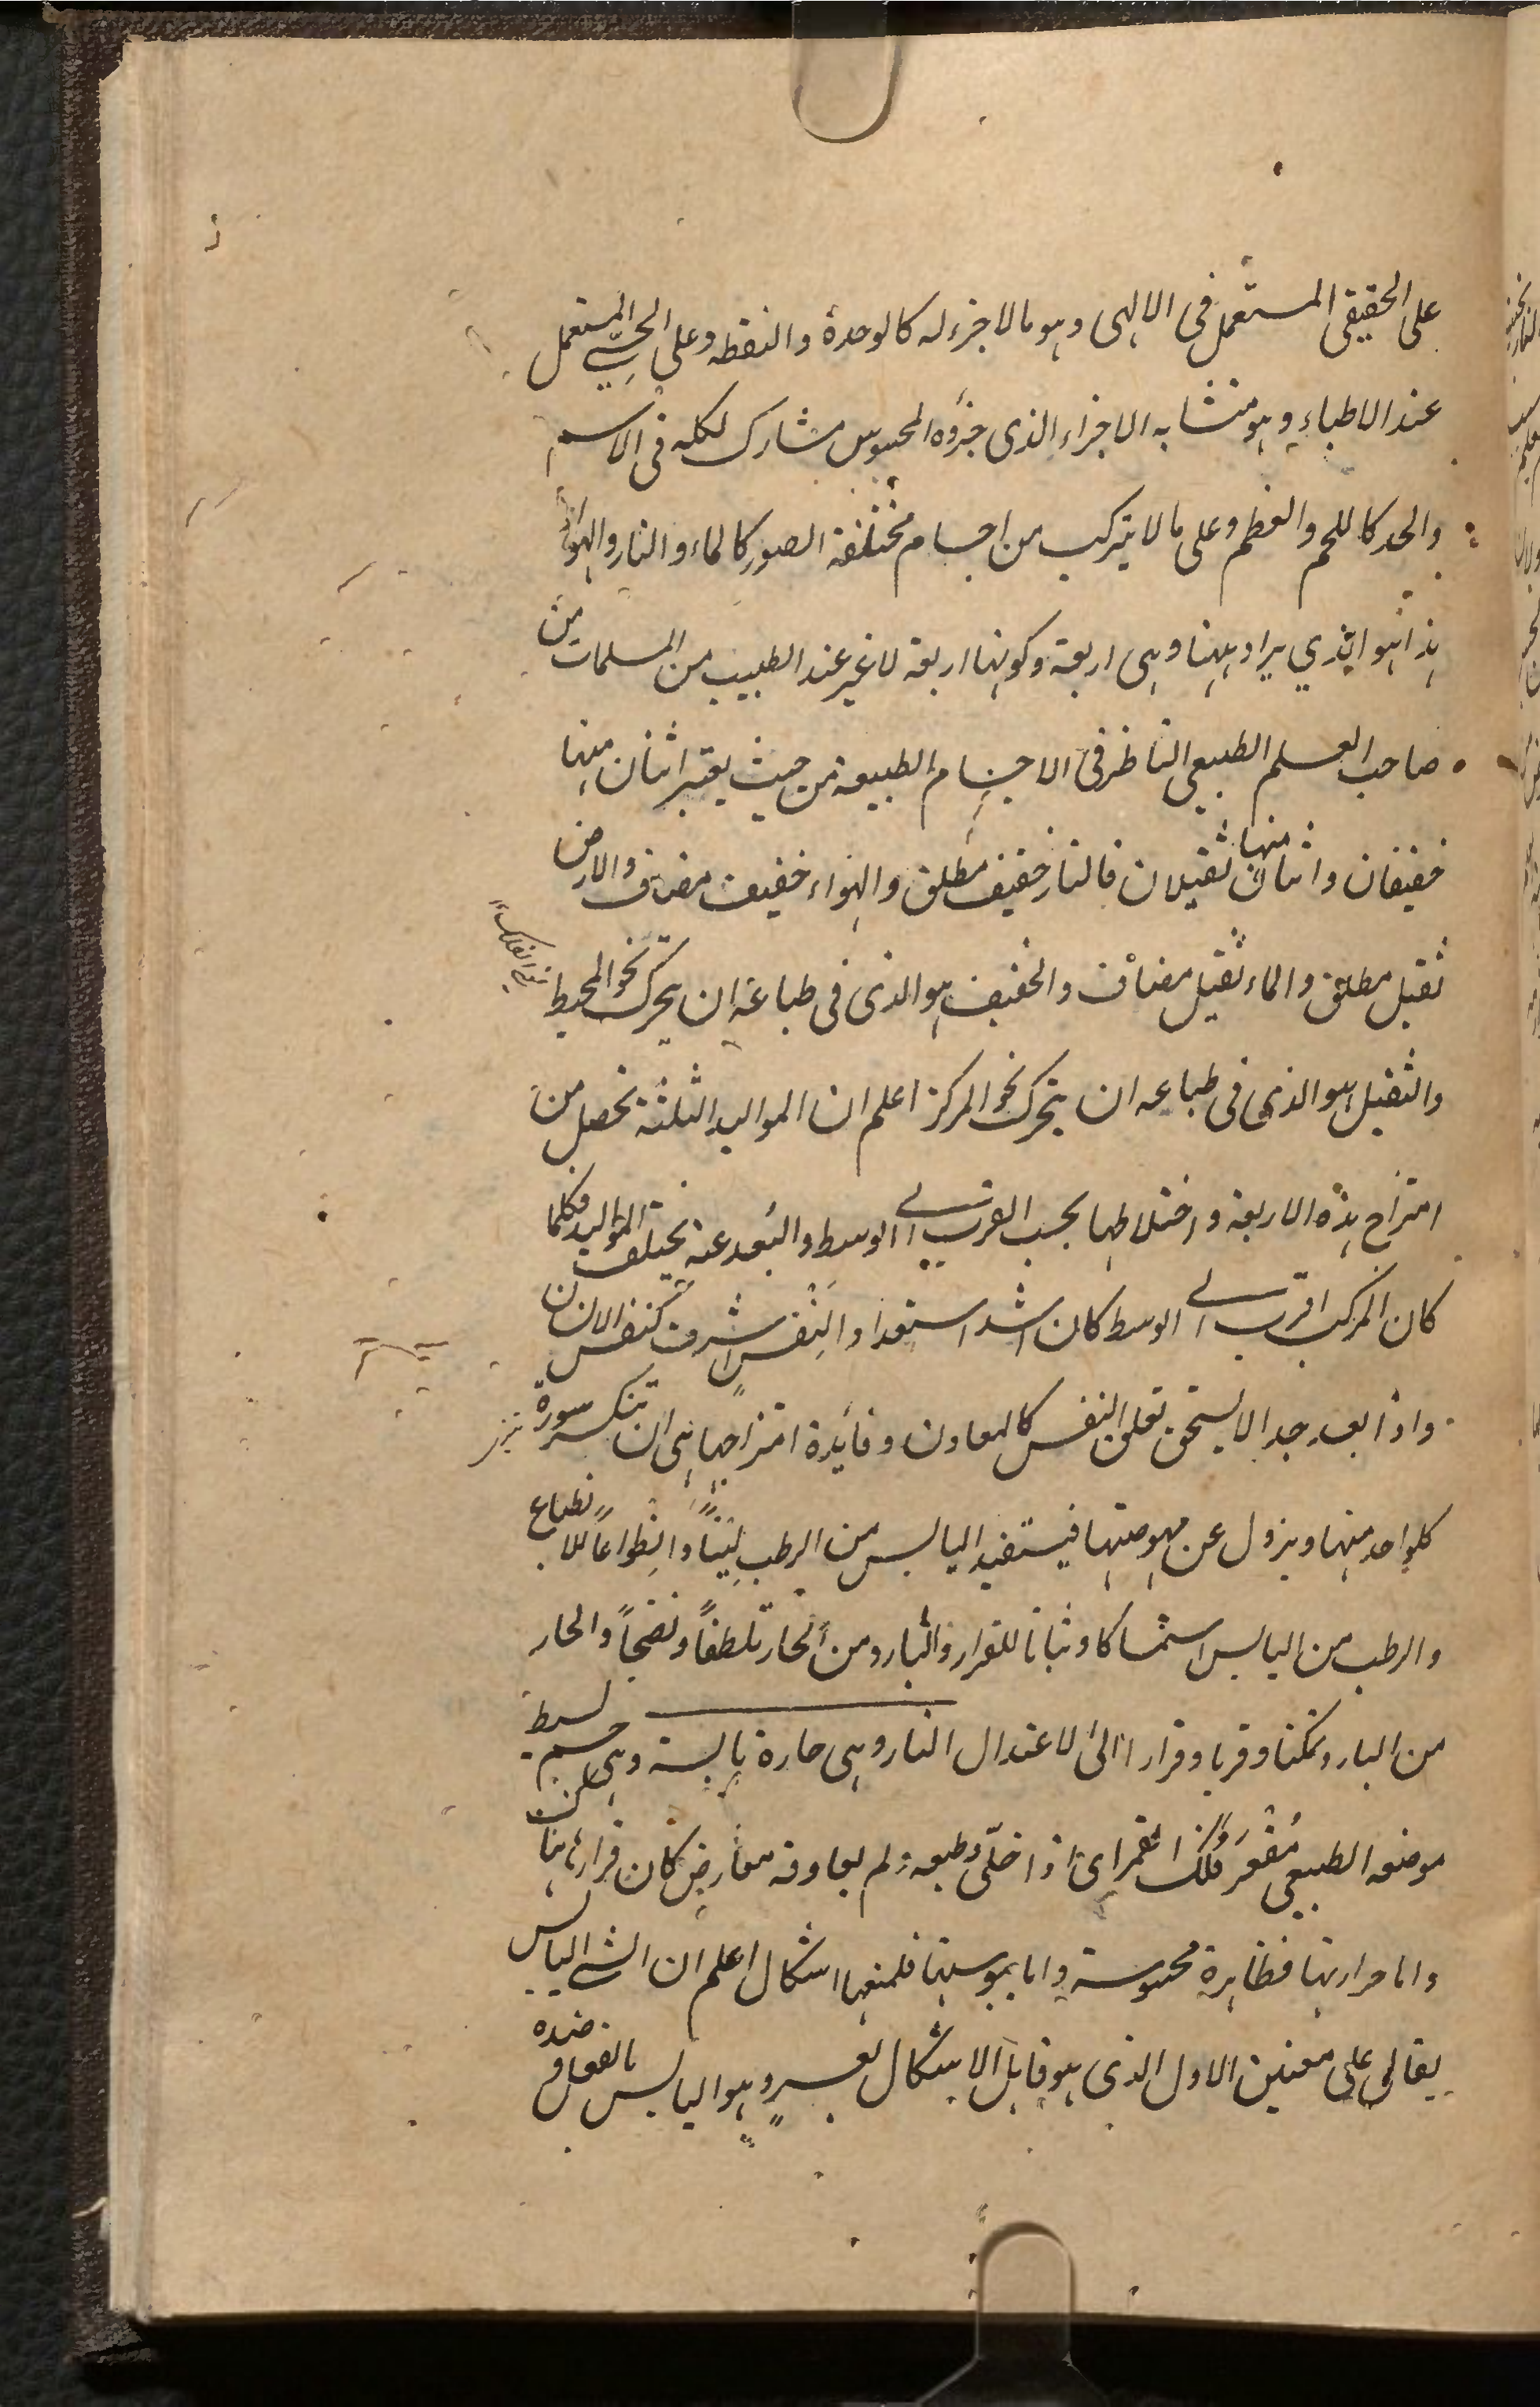 على الحقيقى المستعمل فى الالهى وهو ما لا جزء له كالوحدة والنقطه وعلى الحسّى المستعمل
عند الاطباء وهو متشابه الاجزاء الذى جزؤه المحسوس مشارك لكله فى الاسم
والحد كاللحم والعظم وعلى ما لا يتركب من اجسام مختلفة الصور كالماء والنار والهواء
هذا هو الذي يراد ههنا وهى اربعة وكونها اربعة لا غير عند الطبيب من المسلمات من
صاحب العلم الطبيعى الناظر فى الاجسام الطبيعة من حيث يعتبر اثنان منها
خفيفان واثنان منها ثقيلان فالنار خفيف مطلق والهواء خفيف مضاف والارض
ثقيل مطلق والماء ثقيل مضاف والخفيف هو الذى فى طباعه ان يتحرك نحو المحيط
اى الفلك
والثقيل هو الذى فى طباعه ان يتحرك نحو المركز اعلم ان المواليد الثلثة تحصل من
امتزاج هذه الاربعة واختلاطها بحسب القرب الى الوسط والبعد عنه يختلف المواليد فكلما
كان المركب اقرب الى الوسط كان اشد استعدادا لنفس اشرف كنفس الانسان
واذا بعد جدا لا يستحق تعلق النفس كالمعادن وفائدة امتزاجها هى ان تنكسر سورة
تيزى
كلواحد منها ويزول عن مهوصتها فيستفيد اليابس من الرطب ليّناً وانطواعاً للانطباع
والرطب من اليابس استمساكا وثباتا للقرار والبارد من الحار تلطفاً ونضجاً والحار
من البارد تمكنا وقربا وقرارا الى الاعتدال النار وهى حارة يابسة وهى جسم بسيط
موضعه الطبيعى مُقعّر فلك القمر اى اذا خلّى وطبعه ولم يعاوقه معارض كان قرارها هنا لكن
واما حرارتها فظاهرة محسوسة واما يبوستها فلمنعها اشكال اعلم ان الشى اليابس
يقال على معنين الاول الذى هو قابل الاشكال بعسر وهو اليابس بالفعل و ضده